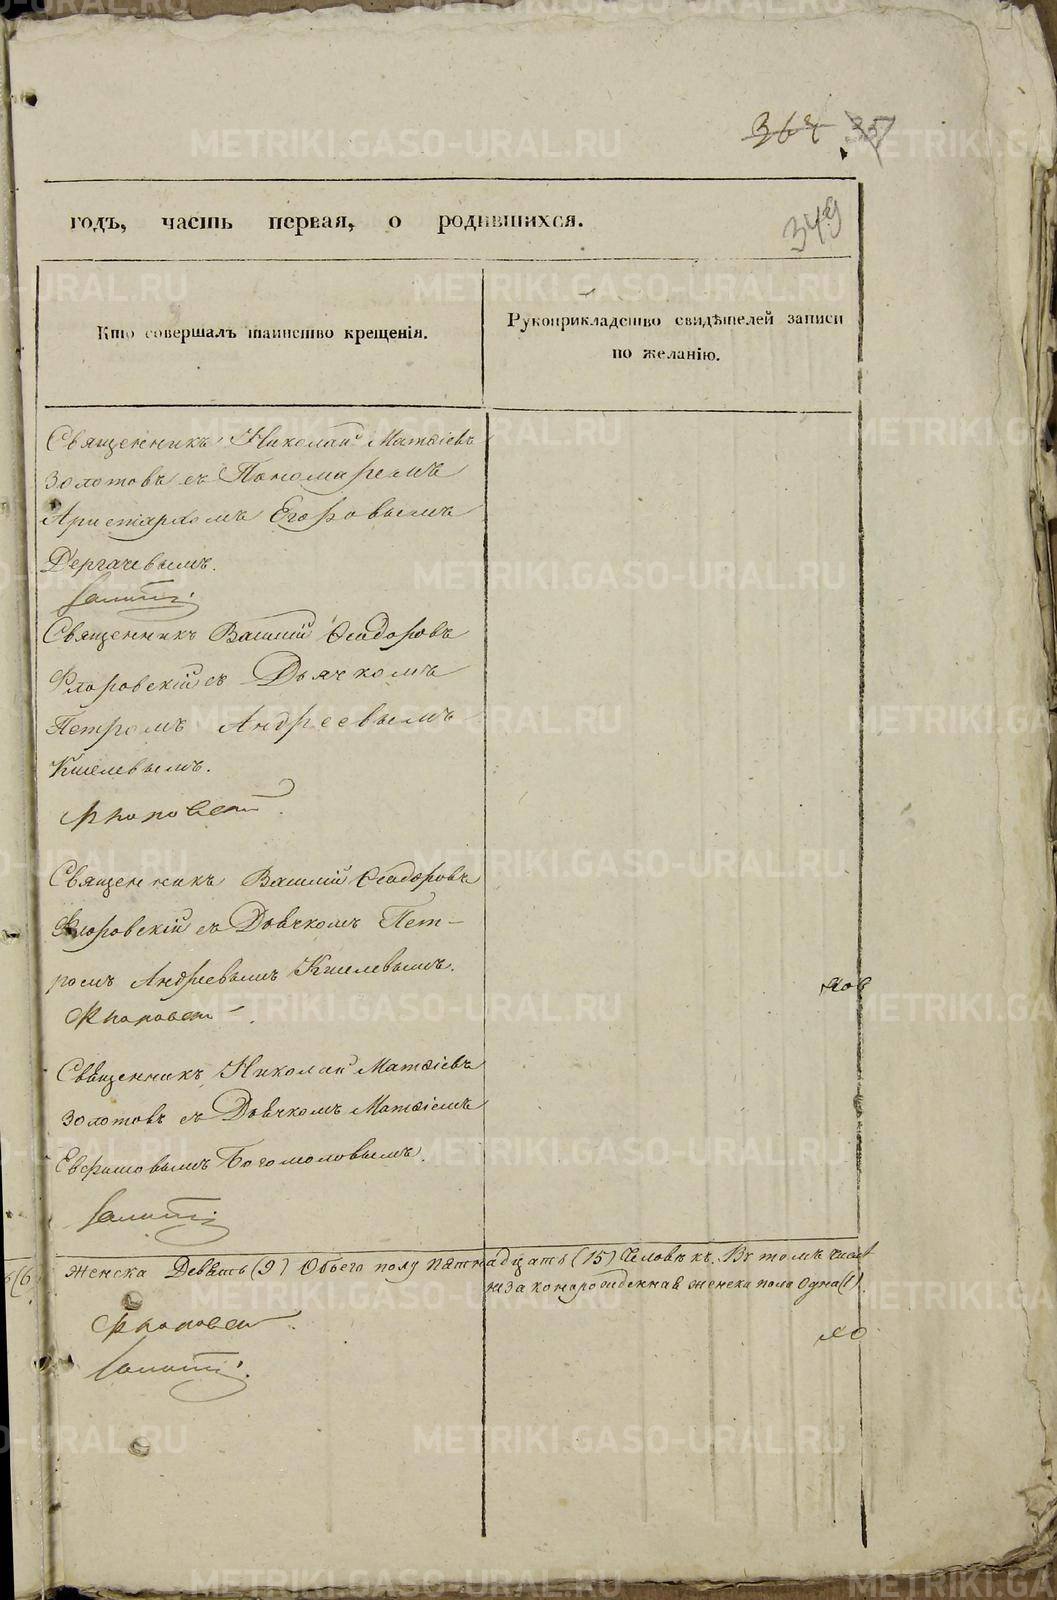 367 357
годъ, часть первая, о родившихся.
349
Кто совершалъ таинство крещенія.
Рукоприкладство свидѣтелей записи
по желанію.
Священникъ Николай Матѳіевъ
Золотовъ съ Пономаремъ
Аристархомъ Егоровымъ
Дергачевымъ.
Священникъ Василій Ѳеодоровъ
Флоровскій съ Дьячкомъ
Петромъ Андреевымъ
Киселевымъ.
Флоровскій
Священникъ Василій Ѳеодоровъ
Флоровскій съ Дьячкомъ Пет-
ромъ Андреевымъ Киселевымъ.
Флоровскій
Священникъ Николай Матѳіевъ
Золотовъ съ Дьячкомъ Матѳіемъ
Богомоловымъ.
Женска Девять (9) Обоего полу пятнадцать (15) Человѣкъ. Въ томъ числѣ
незаконорожденная женска пола одна (1).
Флоровскій
METRIKI.GASO-URAL.RU